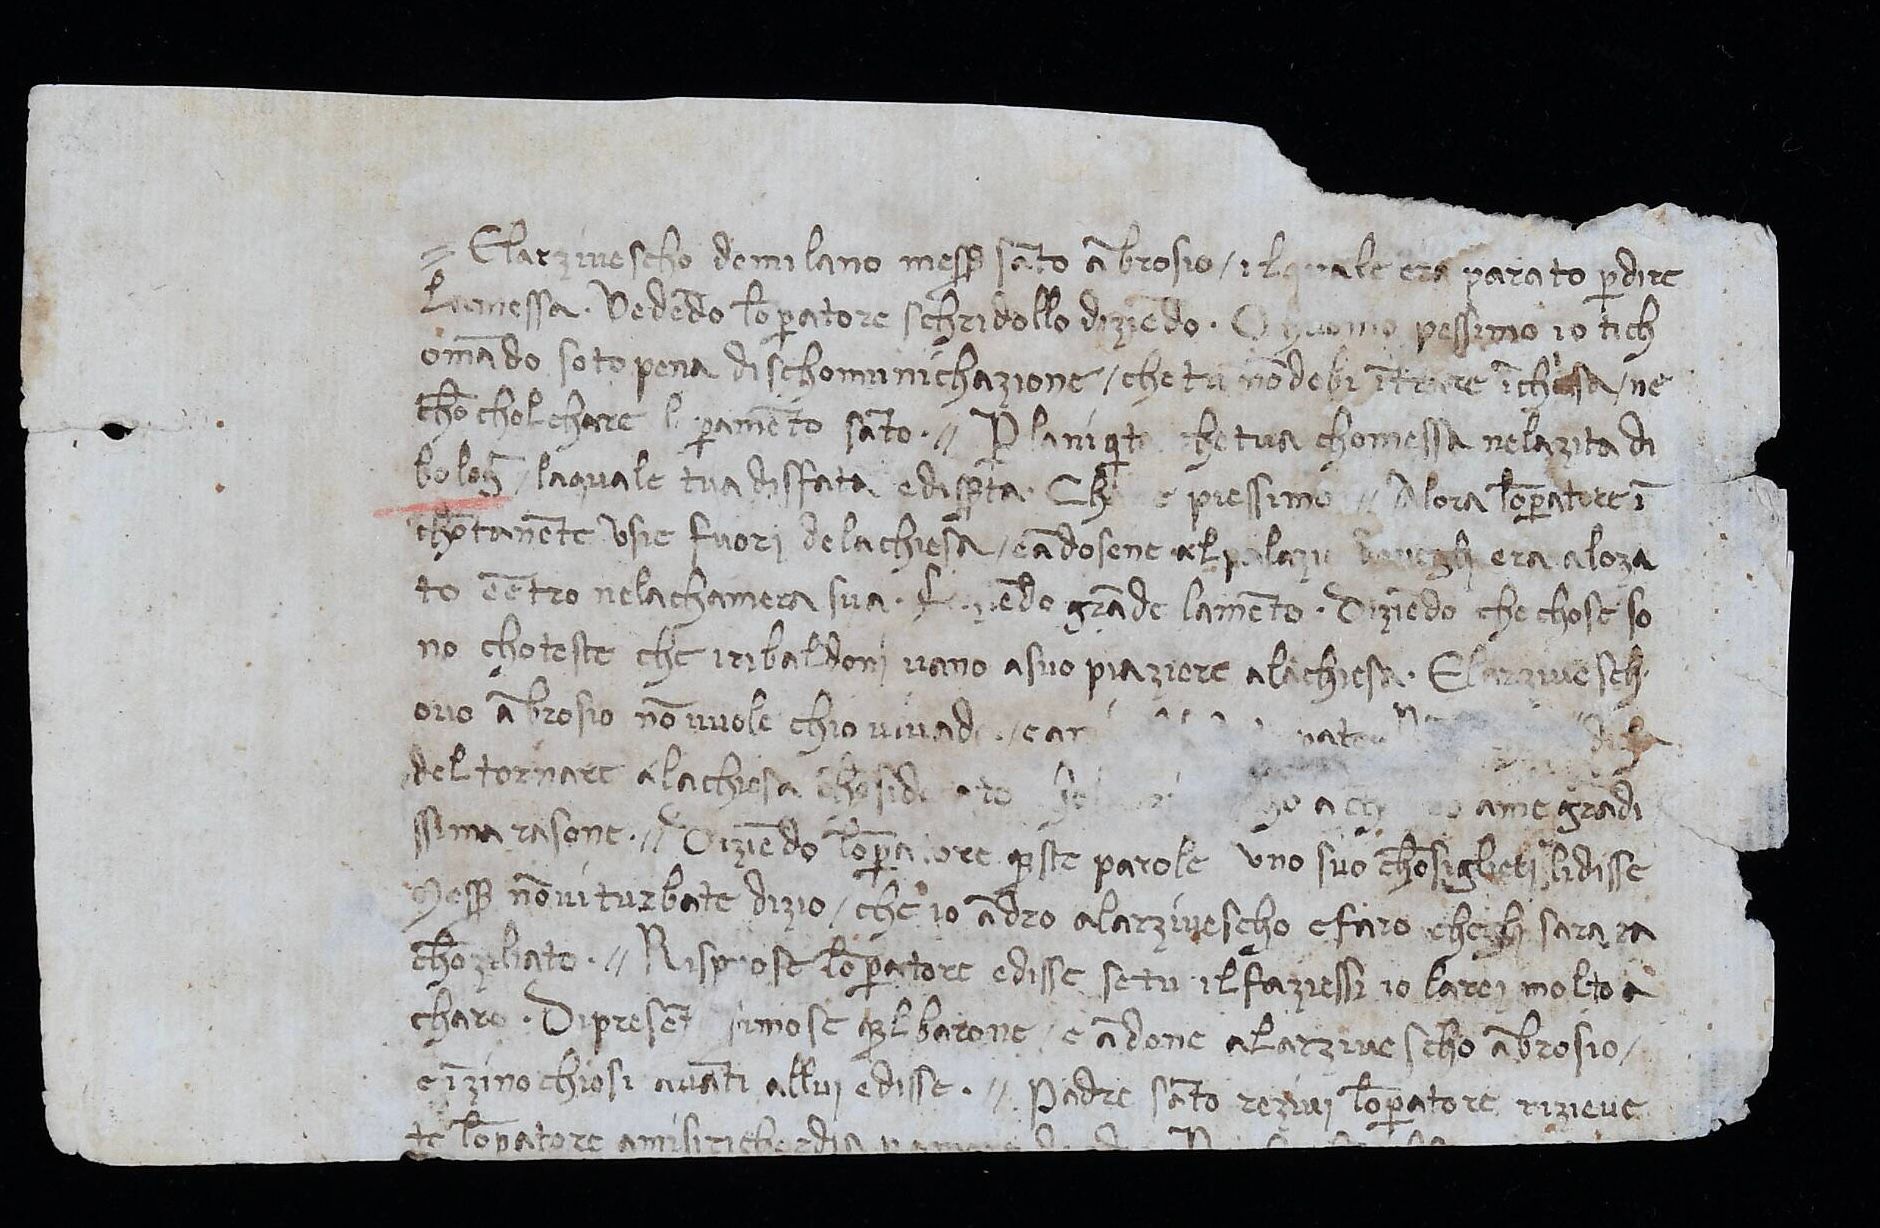 = Elarzivescho demilano messp sāto ābrosio / ilquale era parato p̱dire
Lamessa. Vedēdo lōp̱atore schridollo diziēdo. O huomo pessimo io tich
omādo soto pena dischomunichazione / che tu nō debi ītrare ī chiesa / ne
chō cholchare l p̱amēto sāto. // P̱ laniq̄t che tua chomessa nelazita di
boloḡ / laquale tua disfata edisp̱ta. Ch piessimo // Alora lōp̱atore ī
chōtanēte usie fuori delachiesa / e ādosene alpalazo era aloza
to ēētro nelachamera sua. grāde lamēto. Diziēdo che chose so
no choteste che iribaldoni vano asuo piaziere alachiesa. Elarzivesch
ovo ābrosio nō vuole chio
deltornare alachiesa ame grādi
ssima rasone. // Diziēdo lōp̱atore q̄ste parole uno suo chōsiglieri lidisse
Messp nō vi turbate dizio / che io ādro alarzivescho efaro chegli sara ra
chōziliato. // Rispose lōp̱atore edisse setu ilfaziessi io larei molto a
charo. Dipresēt mose q̄lbarone / e ādone alarzivescho ābrosio /
e īzinochiosi avāti allui edisse. // Padre sāto rezivi lōp̱atore rizieve
te lōp̱atore amisirichordia